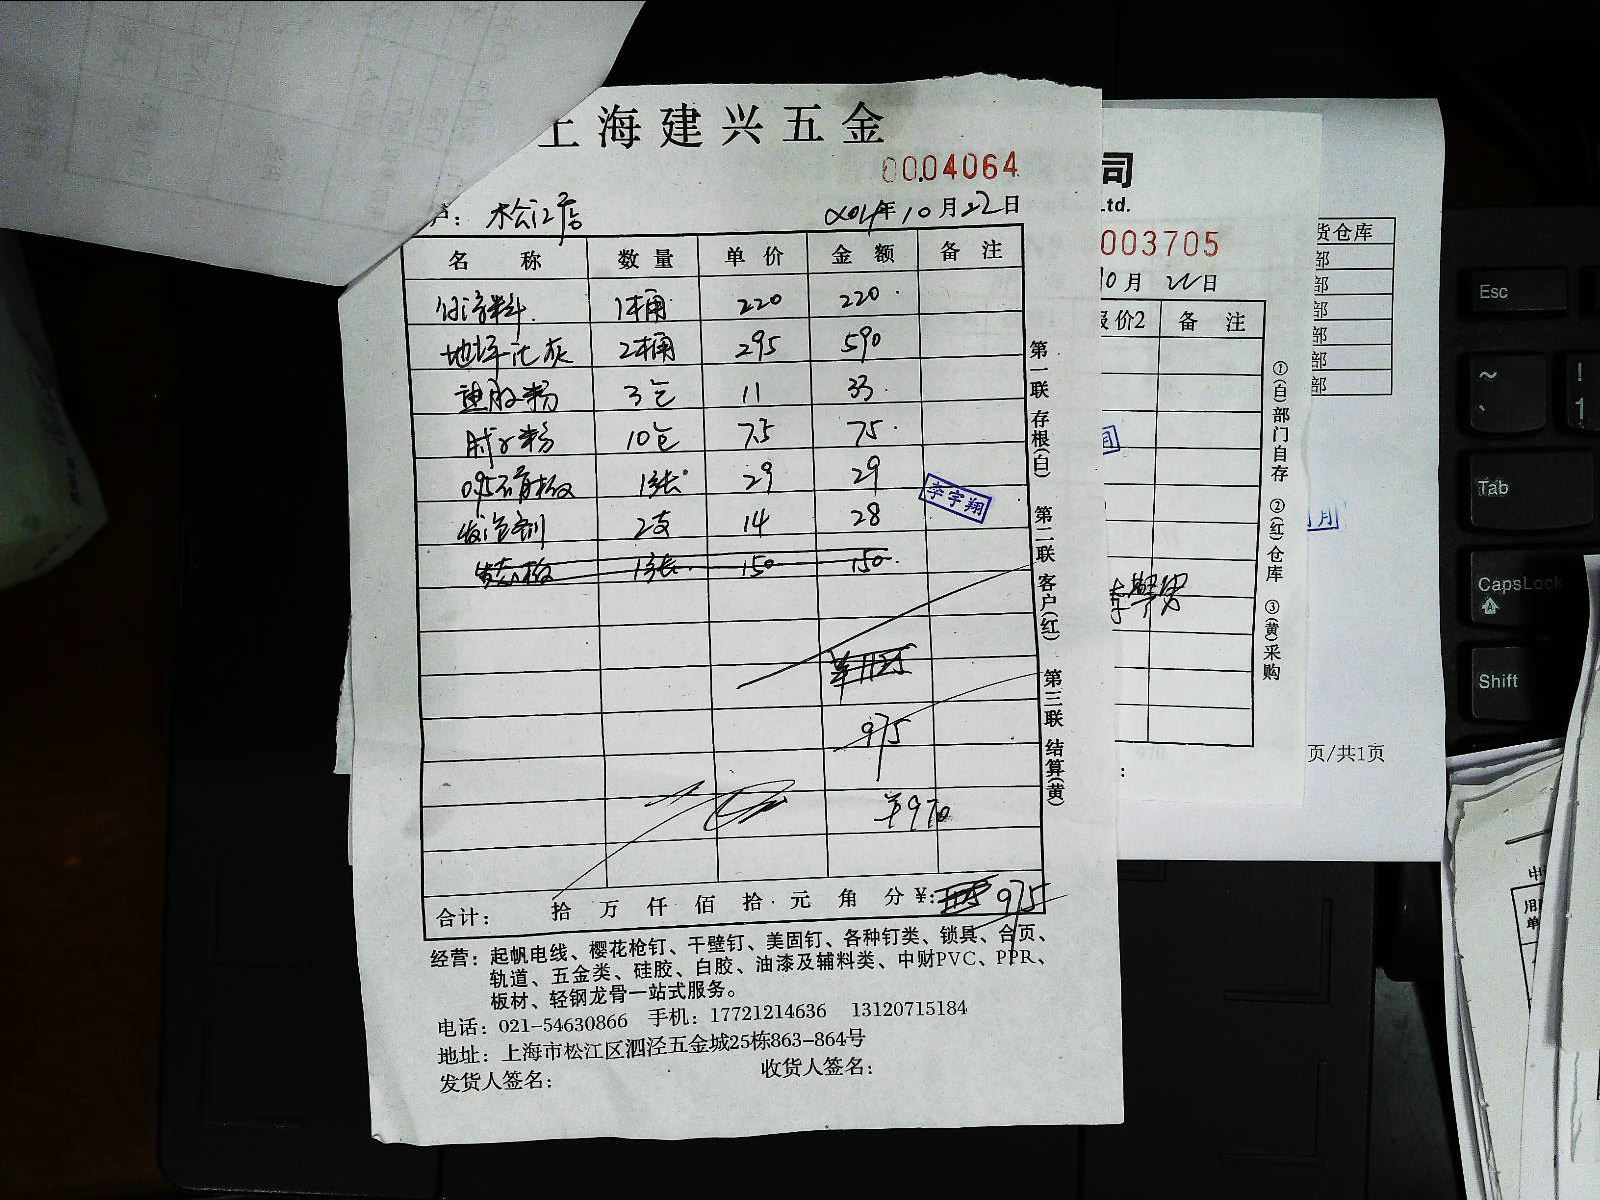 上海建兴五金
0004064
: 松江店
年10月22日
名称 数量 单价 金额 备注
1桶 220 220
地坪 灰 2桶 295 590
粉 3包 11 33
粉 10包 7.5 75
板 1张 29 29
2支 14 28
生态板 1张 150 150
李宇翔
¥1125
975
¥970
合计: 拾 万 仟 佰 拾 元 角 分 ¥: 975
经营: 起帆电线、樱花枪钉、干壁钉、美固钉、各种钉类、锁具、合页、
轨道、五金类、硅胶、白胶、油漆及辅料类、中财PVC、PPR、
板材、轻钢龙骨一站式服务。
电话: 021-54630866 手机: 17721214636 13120715184
地址: 上海市松江区泗泾五金城25栋863-864号
发货人签名: 收货人签名:
第一联 存根(白) 第二联 客户(红) 第三联 结算(黄)
司
Ltd.
003705
10月 22日
价2 备注
①(白)部门自存 ②(红)仓库 ③(黄)采购
货仓库
部
部
部
部
部
部
月
页/共1页
Esc
~
!
1
Tab
CapsLock
Shift